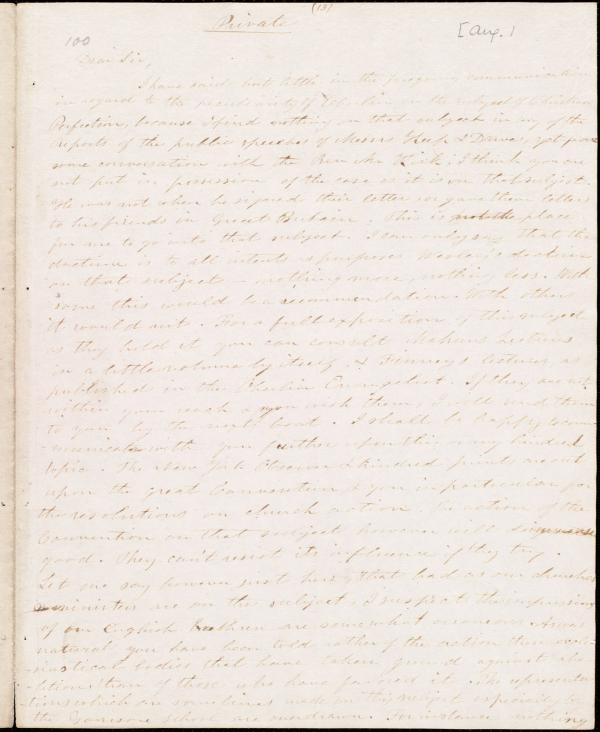 (13)
Private
[Aug.]
100
Dear Sir,
I have said but little in the foregoing communication
in regard to the peculiarity of Oberlin on the subject of Christian
Perfection, because I find nothing on that subject in any of the
reports of the public speeches of Messrs Keep & Dawes, yet from
some conversation with the Rev. I think you are
not put in possession of the case as it is on that subject.
He was not when he signed their letter or gave them letters
to his friends in Great Britain. This is not the place
for me to go into that subject. I can only say that the
doctrine is to all intents & purposes Wesley's doctrine
on that subject - nothing more, nothing less. With
some this would be a recommendation. With others
it would not. For a full exposition of this subject
as they hold it you can consult Mahan's Lectures
in a little volume by itself, & Finney's lectures, as
published in the Oberlin Evangelist. If they are not
within your reach & you wish them, I will send them
to you by the next boat. I shall be happy to com-
municate with you further upon this or any kindred
topic. The New York Observer & kindred prints are out
upon the great Convention & you in particular for
the resolutions on church action. The action of the
Convention on that subject however will do immense
good. They can't resist its influence if they try.
Let me say however just here, that bad as our churches
& ministers are on the subject, I suspect the impressions
of our English Brethren are somewhat erroneous. As was
natural you have been told rather of the action those eccle-
siastical bodies that have taken ground against abo-
lition than of those who have favored it. The representa-
tions which are sometimes made on this subject especially by
the Garrison school are overdrawn. For instance nothing